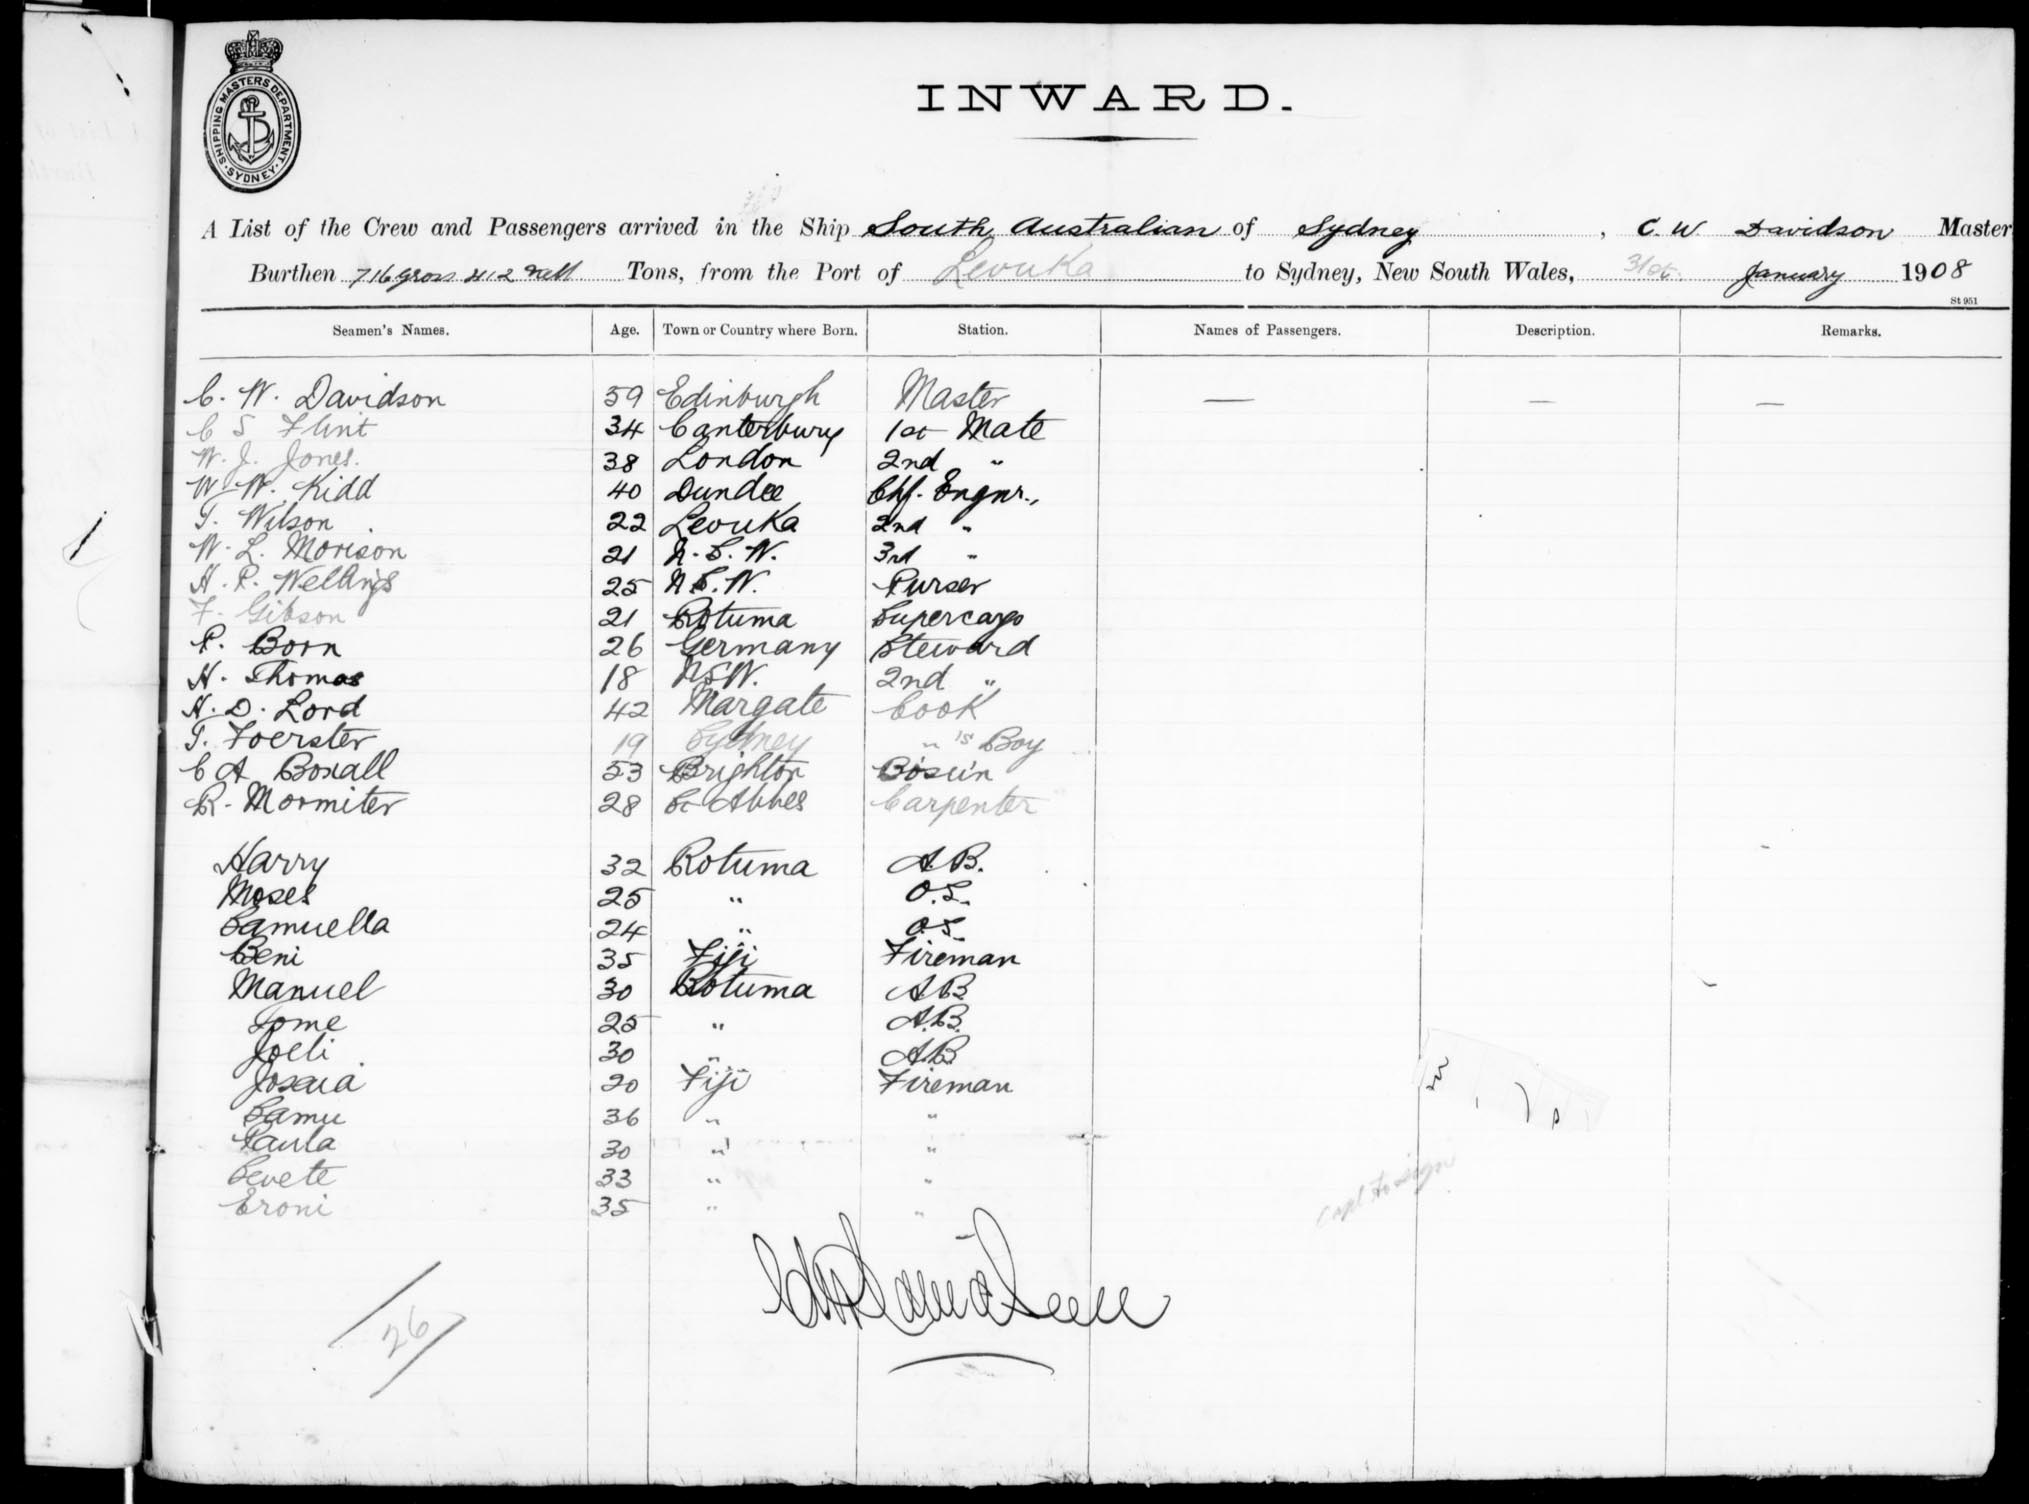 SHIPPING MASTERS DEPARTMENT. SYDNEY.
INWARD.
A List of the Crew and Passengers arrived in the Ship South Australian of Sydney, C. W. Davidson Master
Burthen 716 gross 412 nett Tons, from the Port of Levuka to Sydney, New South Wales, 31st January 1908
St 951
Seamen's Names. Age. Town or Country where Born. Station. Names of Passengers. Description. Remarks.
C. W. Davidson 59 Edinburgh Master — — —
C S Flint 34 Canterbury 1st Mate
W. J. Jones. 38 London 2nd "
W. W. Kidd 40 Dundee Chf. Engnr.,
T. Wilson 22 Levuka 2nd "
W. L. Morison 21 N. S. W. 3rd "
H. P. Wellings 25 N.S.W. Purser
F. Gibson 21 Rotuma Supercargo
P. Born 26 Germany Steward
H. Thomas 18 NSW. 2nd "
H. D. Lord 42 Margate Cook
T. Foerster 19 Sydney " 's Boy
C A Boxall 53 Brighton Bosun
R. Mormiter 28 St Abbes Carpenter
Harry 32 Rotuma A.B.
Moses 25 " O.S.
Samuella 24 " O.S.
Beni 35 Fiji Fireman
Manuel 30 Rotuma A.B.
Tome 25 " A.B.
Joeli 30 " A.B.
Josaia 20 Fiji Fireman
Samu 36 " "
Paula 30 " "
Sevete 33 " "
Eroni 35 " "
Capt to sign
C W Davidson
26